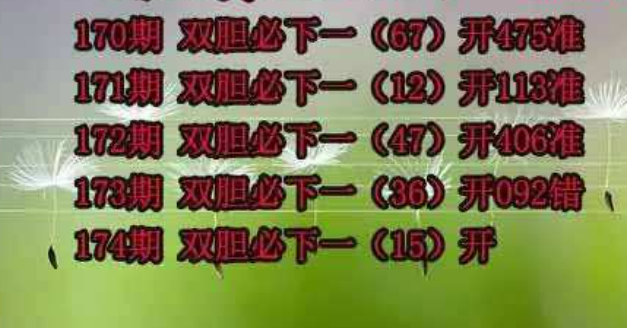 170期 双胆必下一（67）开475准
171期 双胆必下一（12）开113准
172期 双胆必下一（47）开406准
173期 双胆必下一（36）开092错
174期 双胆必下一（15）开